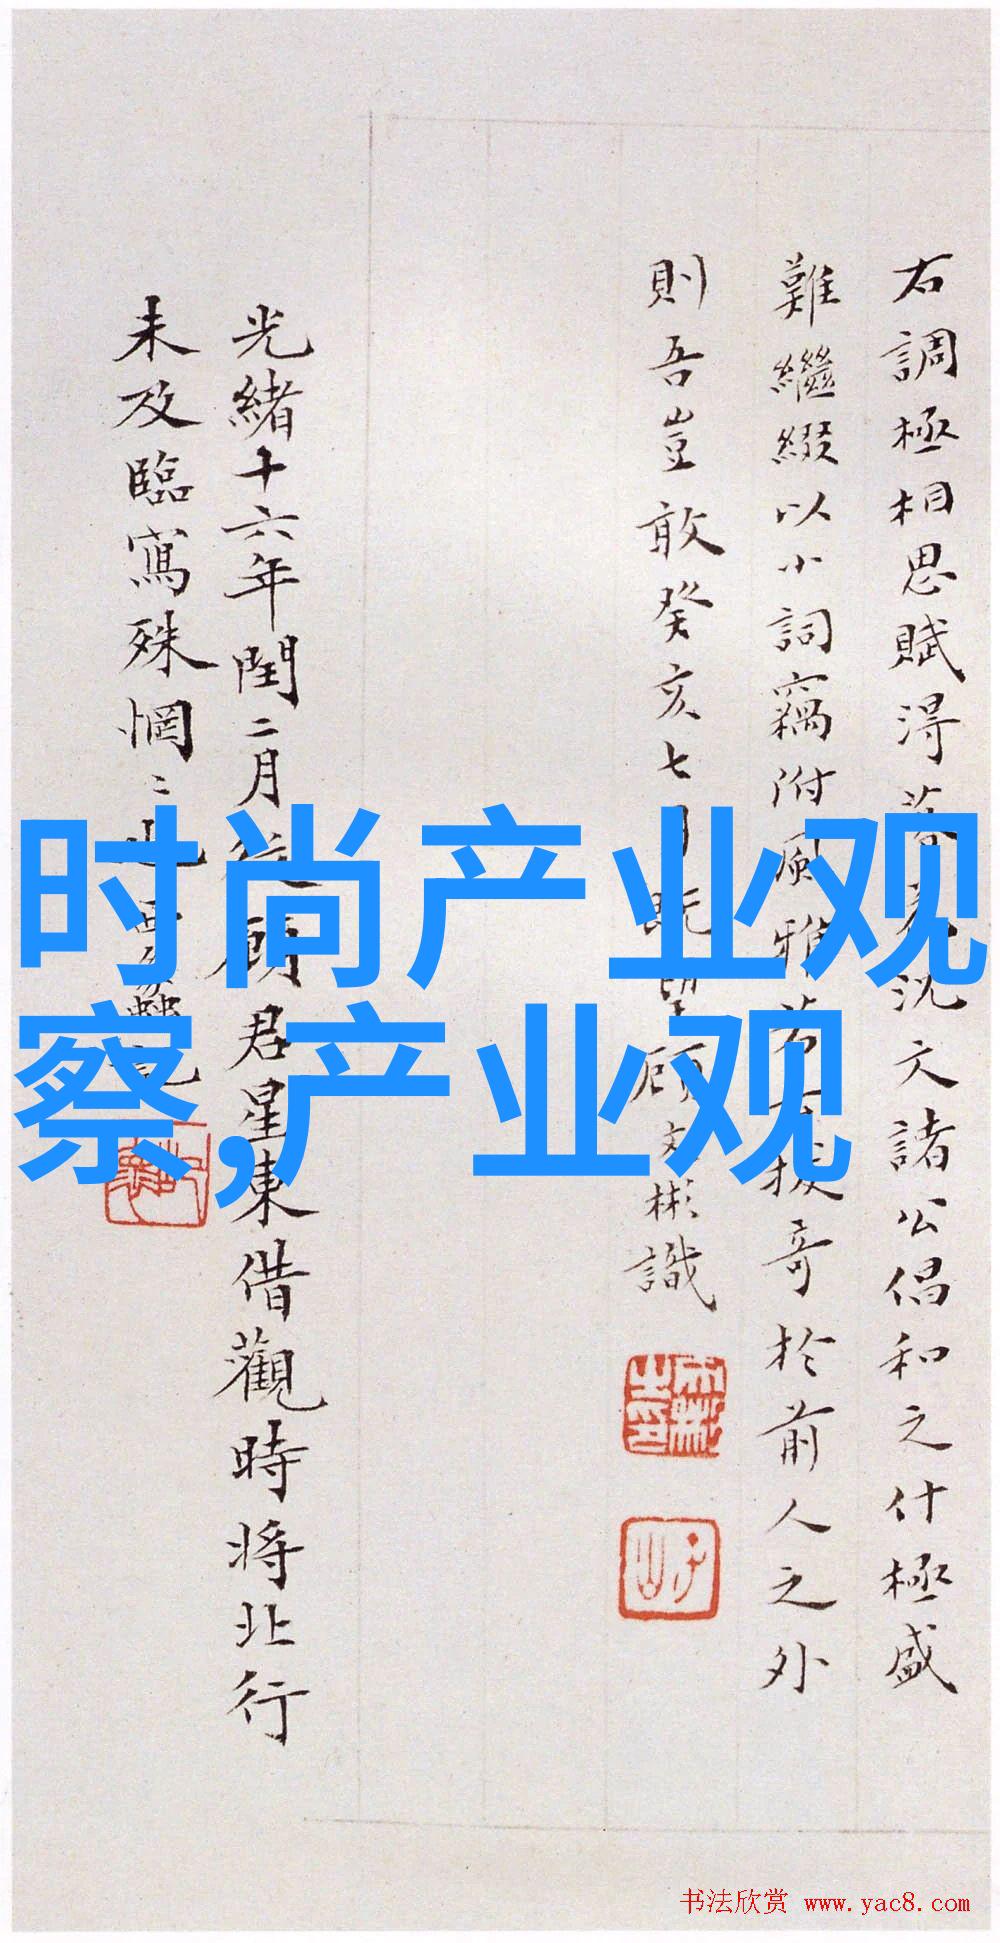 右調極相思賦得落花沈文諸公倡和之什極盛
難繼綴以小詞竊附風雅若拔哥於前人之外
則吾豈敢癸亥七月既望顧文彬識
光緒十六年閏二月從顧君星東借觀時將北行
未及臨寫殊惘〻也
时尚产业观
察,产业观
书法欣赏 www.yac8.com